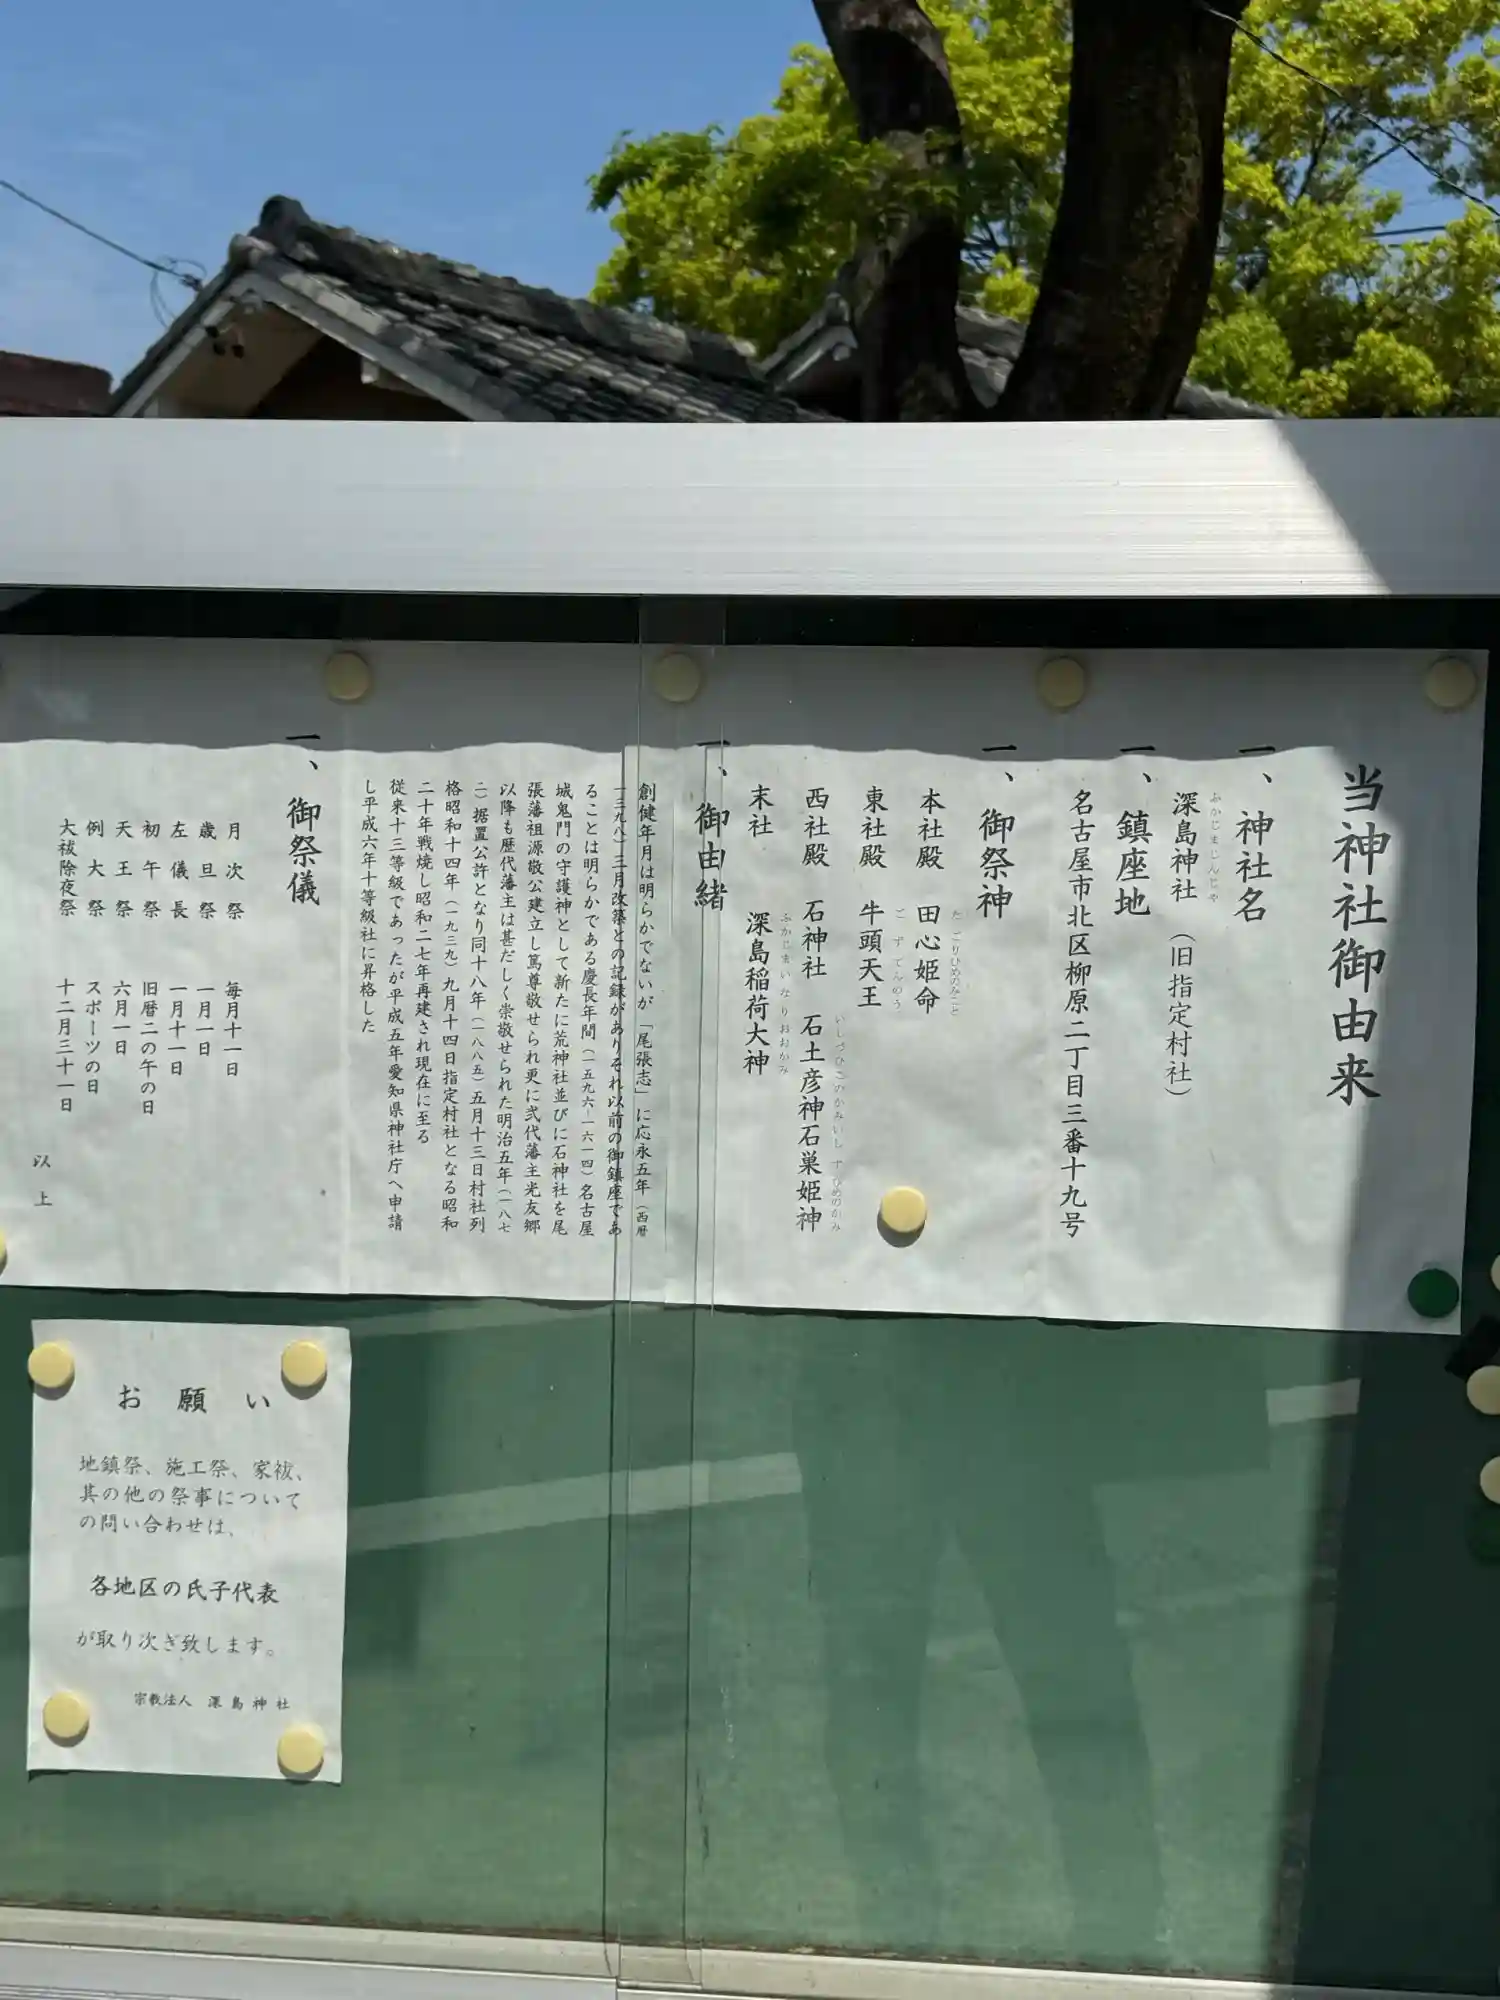 当神社御由来
一、神社名
深島神社（旧指定村社）
ふかじまじんじゃ
一、鎮座地
名古屋市北区柳原二丁目三番十九号
一、御祭神
本社殿 田心姫命
たごりひめのみこと
東社殿 牛頭天王
ごずてんのう
西社殿 石神社 石土彦神石巣姫神
いしづひこのかみいしずひめのかみ
末社 深島稲荷大神
ふかじまいなりおおかみ
一、御由緒
創健年月は明らかでないが「尾張志」に応永五年（西暦
一三九八）三月改築との記録がありそれ以前の御鎮座であ
ることは明らかである慶長年間（一五九六ー一六一四）名古屋
城鬼門の守護神として新たに荒神社並びに石神社を尾
張藩祖源敬公建立し篤尊敬せられ更に弐代藩主光友郷
以降も歴代藩主は甚だしく崇敬せられた明治五年（一八七
二）据置公許となり同十八年（一八八五）五月十三日村社列
格昭和十四年（一九三九）九月十四日指定村社となる昭和
二十年戦焼し昭和二七年再建され現在に至る
従来十三等級であったが平成五年愛知県神社庁へ申請
し平成六年十等級社に昇格した
一、御祭儀
月次祭 毎月十一日
歳旦祭 一月一日
左儀長 一月十一日
初午祭 旧暦二の午の日
天王祭 六月一日
例大祭 スポーツの日
大祓除夜祭 十二月三十一日
以上
お願い
地鎮祭、施工祭、家祓、
其の他の祭事について
の問い合わせは、
各地区の氏子代表
が取り次ぎ致します。
宗教法人 深島神社